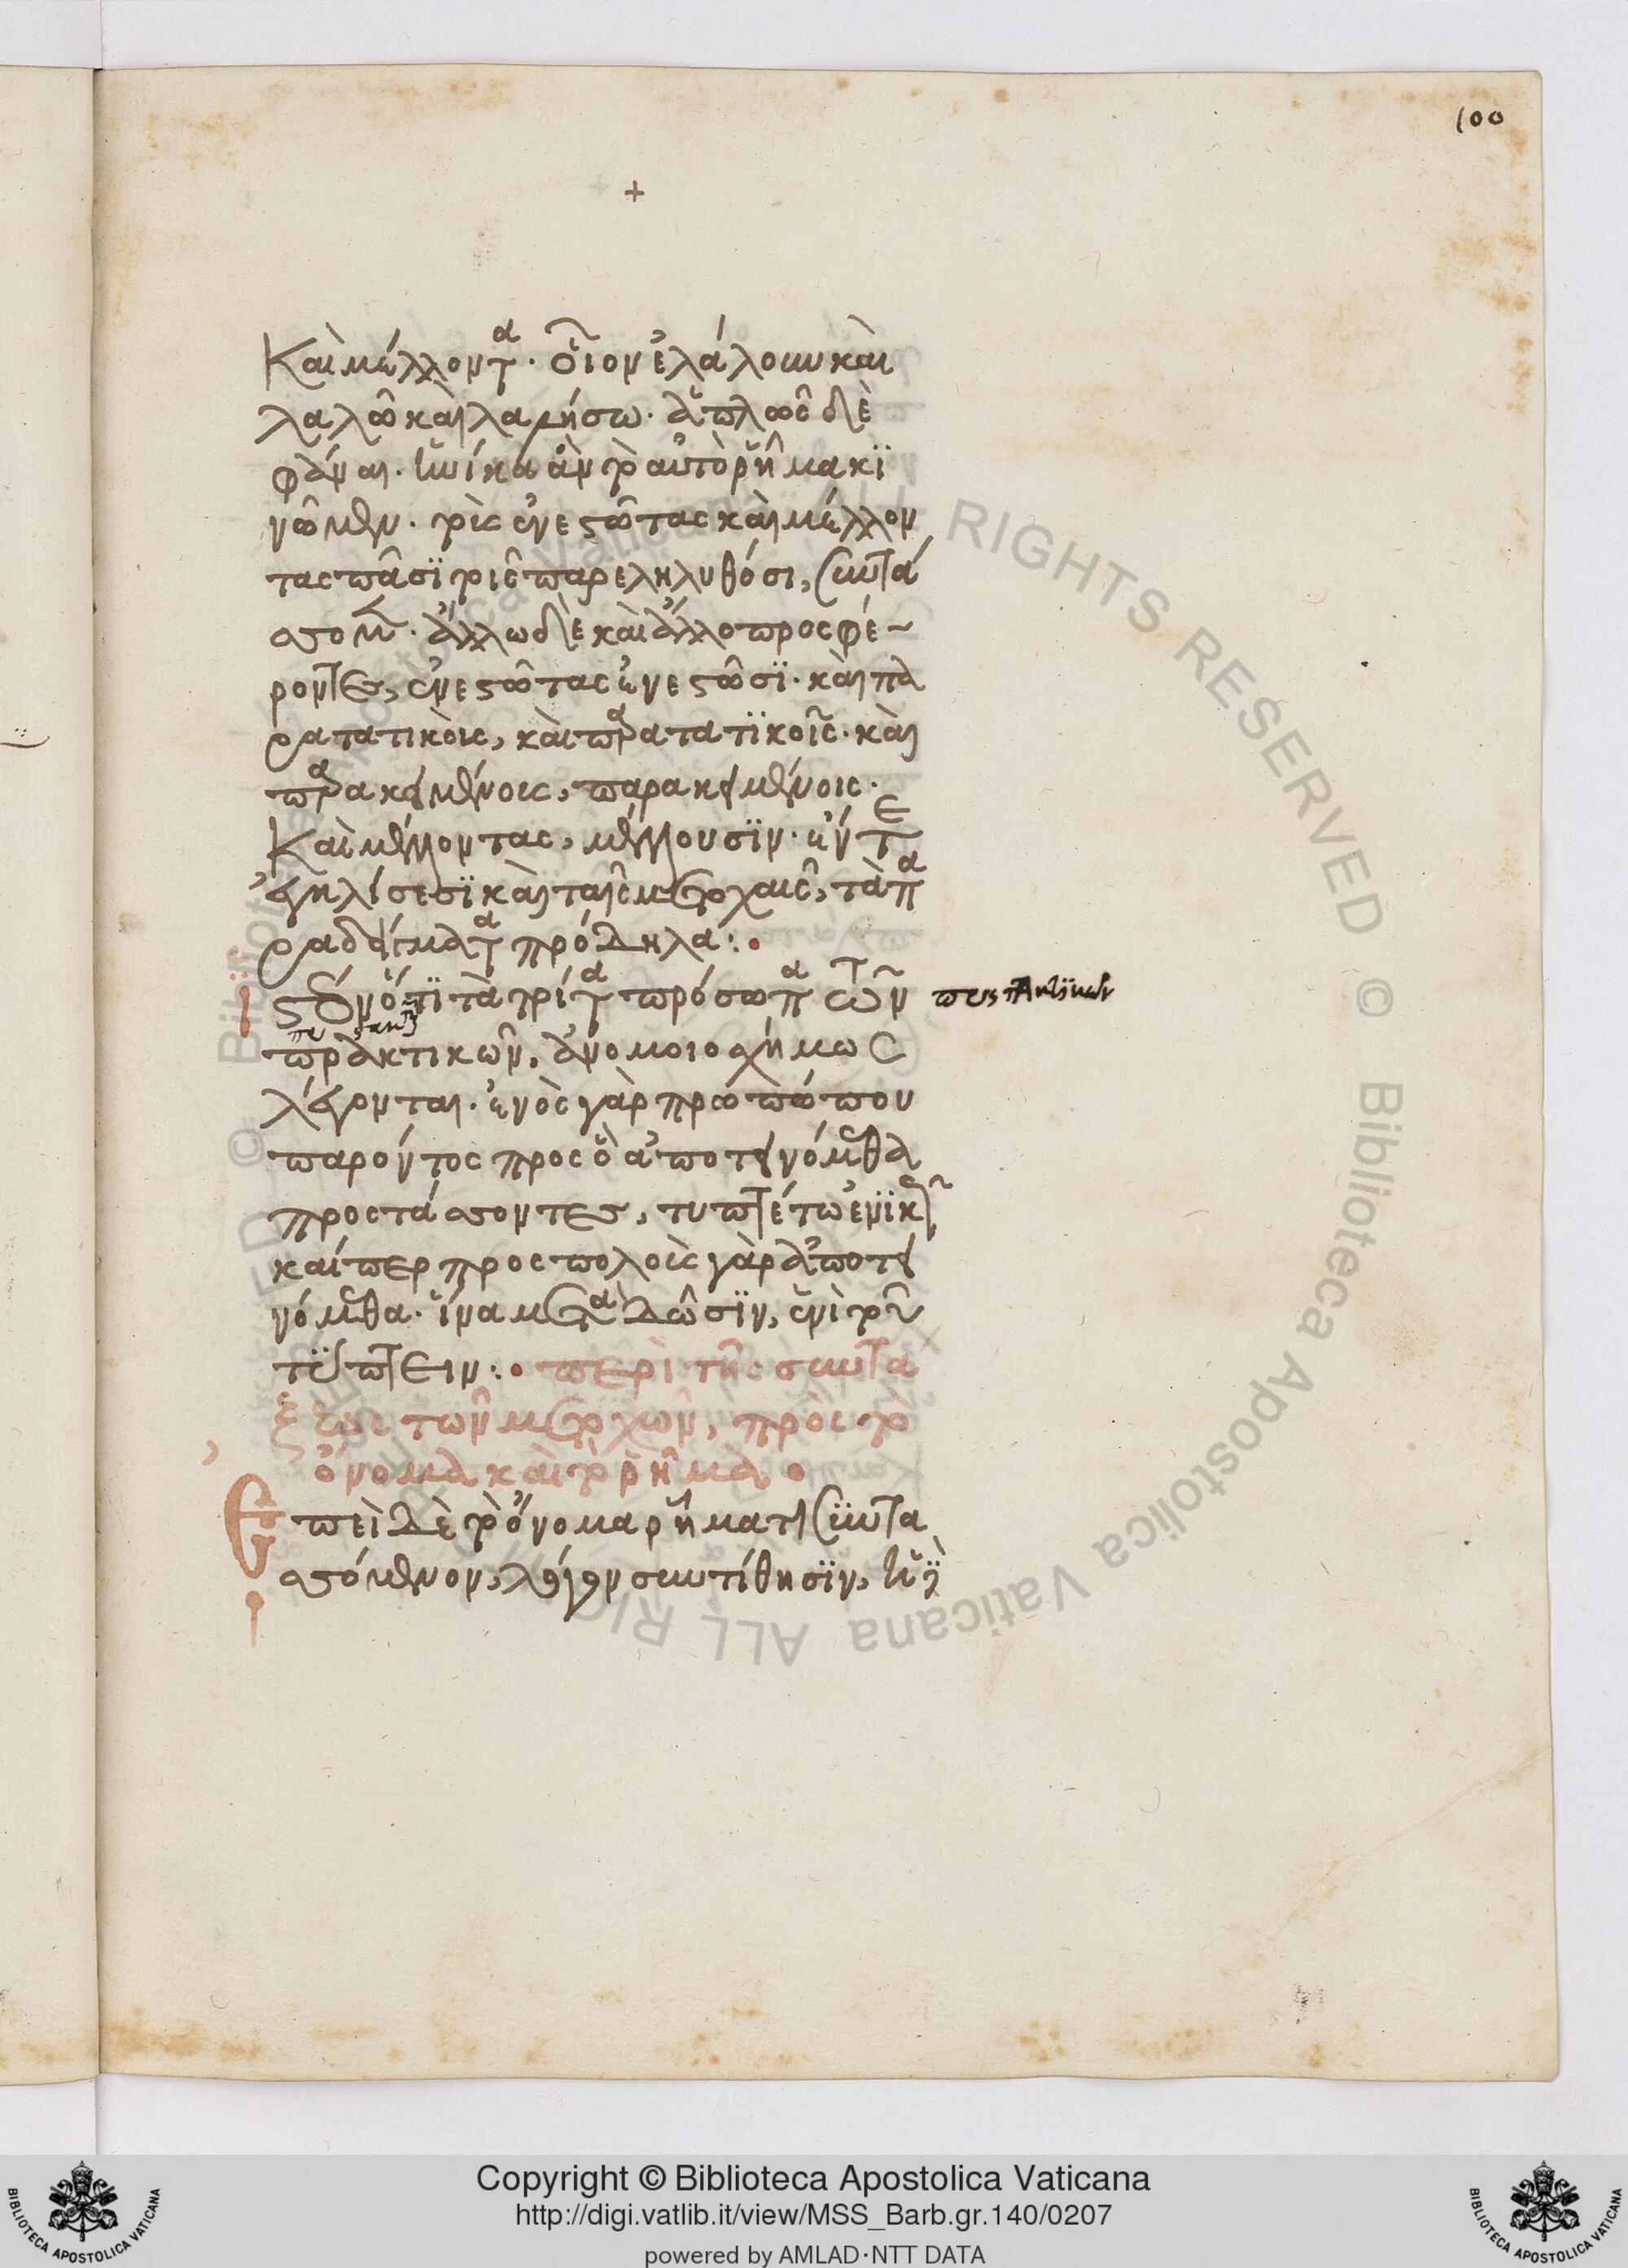 100
+
Καὶ μέλλοντα. οἷον ἐλάλουν καὶ
λαλῶ καὶ λαλήσω. ἁπλῶς δὲ
φάναι. ἡνίκα ἂν τὸ αὐτὸ ῥῆμα κϊ
νῶμεν. τοὺς ἐνεστῶτας καὶ μέλλον
τας πᾶσϊ τοῖς παρεληλυθόσι, συντά
σσομεν. ἄλλω δὲ καὶ ἄλλο προσφέ-
ροντες, ἐνεστῶτας ἐνεστῶσϊ. καὶ πα
ρατατικοὺς, καὶ παρατατϊκοῖς. καὶ
παρακειμένους, παρακειμένοις.
Καὶ μέλλοντας, μέλλουσϊν. ἔν τε
ἐγκλίσεσϊ καὶ ταῖς μετοχαῖς, τὰ πα
ραδείγματα πρόδηλα:
στέον ὅτϊ τὰ τρίτα πρόσωπα τῶν
πρακτικῶν, ἀνομοιοσχήμως
λέγονται. ἑνὸς γὰρ προσώπου
παρόντος προς ὃ ἀποτεινόμεθα
προστάσσοντες, τυπτέτω ἐνϊκῶς
καίπερ προς πολοὺς γὰρ ἀποτει
νόμεθα. ἵνα μεταδῶσϊν, ἑνὶ τοῦ
τύπτειν: περὶ τῆς συντά
ξεως τῶν μετοχῶν, πρὸς τὸ
ὄνομα καὶ τὸ ῥῆμα
Επειδὲ τὸ ὄνομα ῥήματι συντα
σσόμενον, λόγον συντίθησϊν,
Copyright © Biblioteca Apostolica Vaticana
http://digi.vatlib.it/view/MSS_Barb.gr.140/0207
powered by AMLAD·NTT DATA
BIBLIOTECA APOSTOLICA VATICANA
BIBLIOTECA APOSTOLICA VATICANA
© Biblioteca Apostolica Vaticana ALL RIGHTS RESERVED